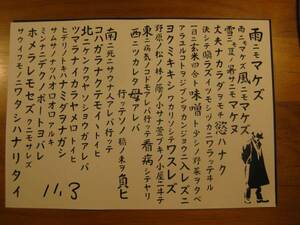 雨ニモマケズ 風ニモマケズ
雪ニモ夏ノ暑サニモマケヌ
丈夫ナカラダヲモチ 慾ハナク
決シテ瞋ラズイツモシヅカニワラッテヰル
一日ニ玄米四合ト味噌ト少シノ野菜ヲタベ
アラユルコトヲジブンヲカンジョウニ入レズニ
ヨクミキキシワカリソシテワスレズ
野原ノ松ノ林ノ蔭ノ小サナ萱ブキノ小屋ニヰテ
東ニ病気ノコドモアレバ行ッテ看病シテヤリ
西ニツカレタ母アレバ
行ッテソノ稲ノ束ヲ負ヒ
南ニ死ニサウナ人アレバ行ッテ
コハガラナクテモイイトイヒ
北ニケンクヮヤソショウガアレバ
ツマラナイカラヤメロトイヒ
ヒデリノトキハナミダヲナガシ
サムサノナツハオロオロアルキ
ミンナニデクノボートヨバレ
ホメラレモセズクニモサレズ
サウイフモノニワタシハナリタイ
11.3